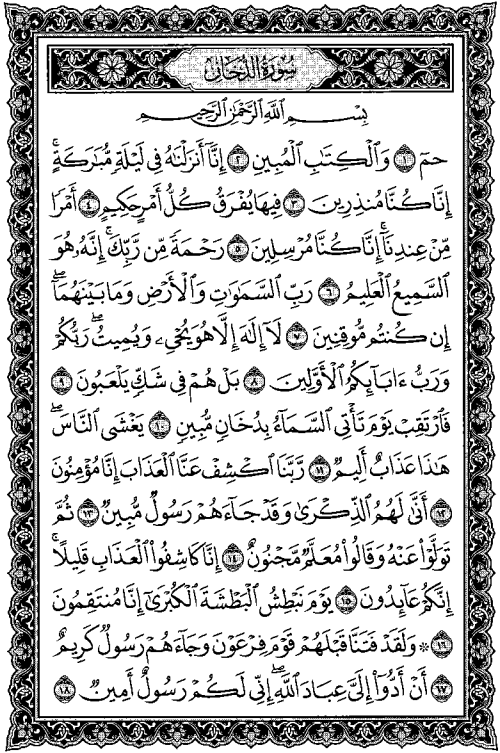 سُورَةُ الدُّخَانِ
بِسْمِ اللَّهِ الرَّحْمَٰنِ الرَّحِيمِ
حمٓ ١ وَالْكِتَابِ الْمُبِينِ ٢ إِنَّا أَنزَلْنَاهُ فِي لَيْلَةٍ مُّبَارَكَةٍ ۚ
إِنَّا كُنَّا مُنذِرِينَ ٣ فِيهَا يُفْرَقُ كُلُّ أَمْرٍ حَكِيمٍ ٤ أَمْرًا
مِّنْ عِندِنَا ۚ إِنَّا كُنَّا مُرْسِلِينَ ٥ رَحْمَةً مِّن رَّبِّكَ ۚ إِنَّهُ هُوَ
السَّمِيعُ الْعَلِيمُ ٦ رَبِّ السَّمَاوَاتِ وَالْأَرْضِ وَمَا بَيْنَهُمَا ۖ
إِن كُنتُم مُّوقِنِينَ ٧ لَا إِلَٰهَ إِلَّا هُوَ يُحْيِي وَيُمِيتُ ۖ رَبُّكُمْ
وَرَبُّ ءَابَآئِكُمُ الْأَوَّلِينَ ٨ بَلْ هُمْ فِي شَكٍّ يَلْعَبُونَ ٩
فَارْتَقِبْ يَوْمَ تَأْتِي السَّمَآءُ بِدُخَانٍ مُّبِينٍ ١٠ يَغْشَى النَّاسَ ۖ
هَٰذَا عَذَابٌ أَلِيمٌ ١١ رَّبَّنَا اكْشِفْ عَنَّا الْعَذَابَ إِنَّا مُؤْمِنُونَ
١٢ أَنَّىٰ لَهُمُ الذِّكْرَىٰ وَقَدْ جَآءَهُمْ رَسُولٌ مُّبِينٌ ١٣ ثُمَّ
تَوَلَّوْا عَنْهُ وَقَالُوا مُعَلَّمٌ مَّجْنُونٌ ١٤ إِنَّا كَاشِفُوا الْعَذَابِ قَلِيلًا ۚ
إِنَّكُمْ عَآئِدُونَ ١٥ يَوْمَ نَبْطِشُ الْبَطْشَةَ الْكُبْرَىٰٓ إِنَّا مُنتَقِمُونَ
١٦ ۞ وَلَقَدْ فَتَنَّا قَبْلَهُمْ قَوْمَ فِرْعَوْنَ وَجَآءَهُمْ رَسُولٌ كَرِيمٌ
١٧ أَنْ أَدُّوٓا إِلَيَّ عِبَادَ اللَّهِ ۖ إِنِّي لَكُمْ رَسُولٌ أَمِينٌ ١٨